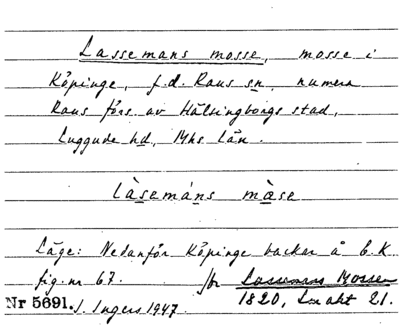 Lassemans mosse, mosse i
Köpinge, f.d. Raus sn, numera
Raus förs. av Hälsingborgs stad,
Luggude hd, Mhs län.
làsemáns màse
Läge: Nedanför Köpinge backar å E.K.
fig. nr 67. Lassemans Mosse
Nr 5691. I. Ingers 1947. 1820, Lm akt 21.